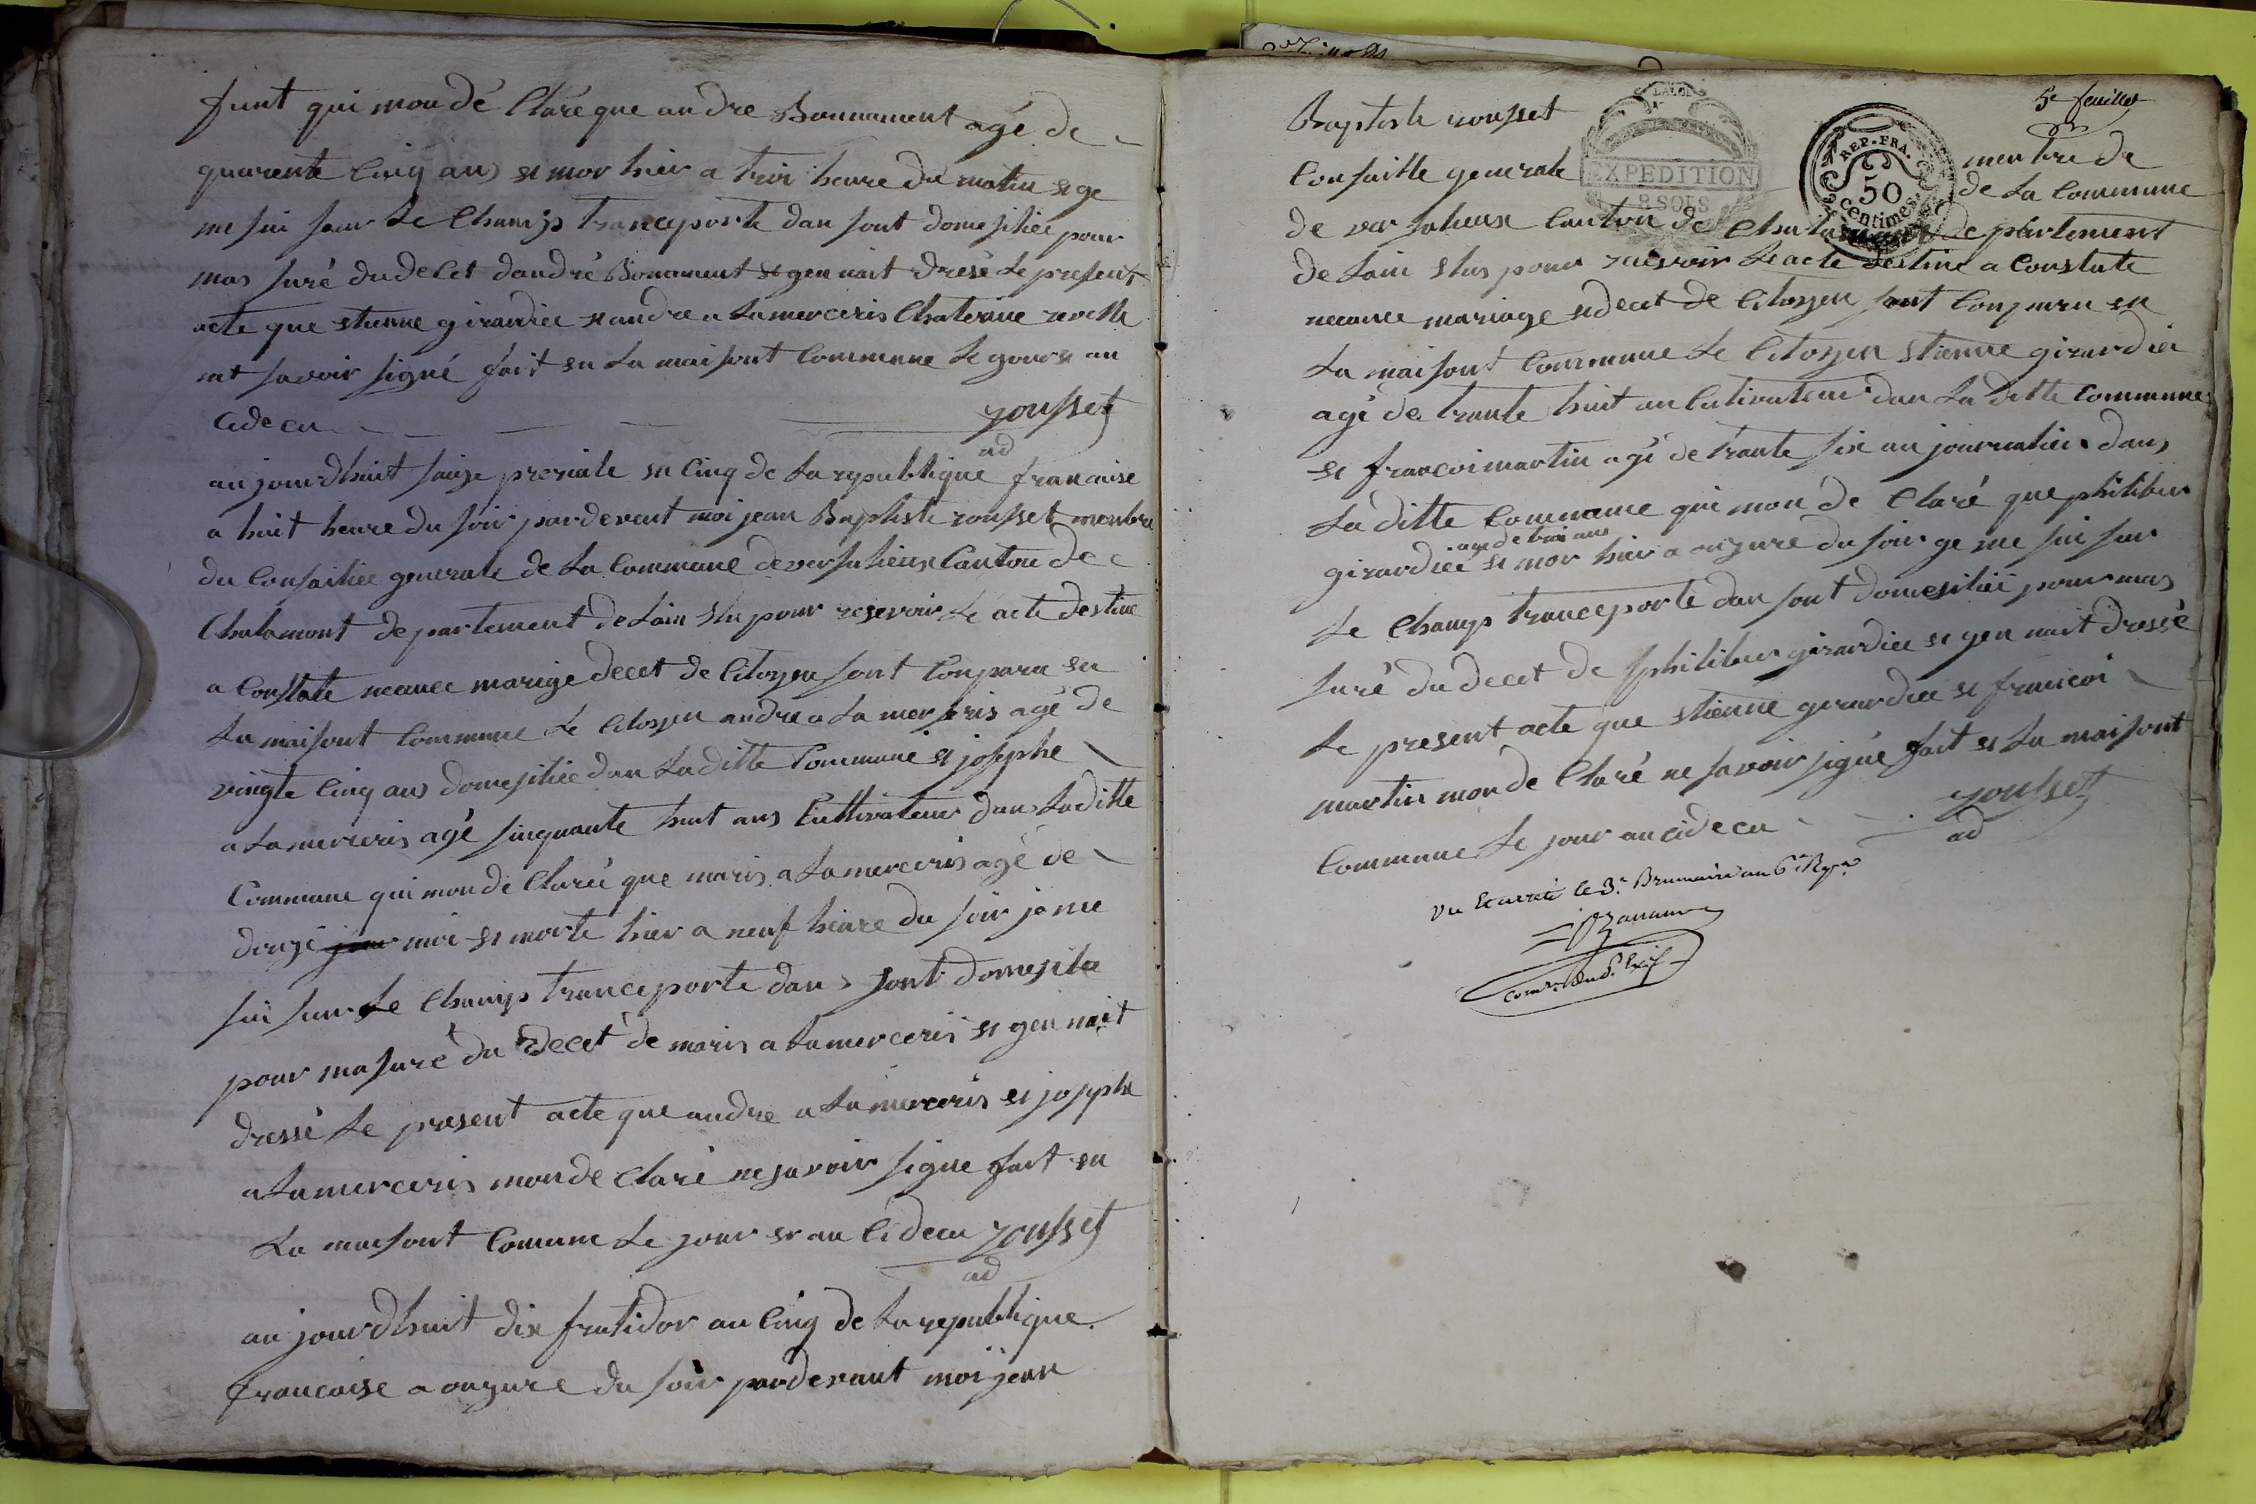 funt qui mon dé Claré que andre Bonnament agé de
quarente Cinq ans se mor hier a troi heure du matin se ge
me sui sur Le Champ tranceporte dan sont domesiliée pour
mas suré du de Cet dandré Bonament se gen nait dresé Le present
acte que etienne girardiee se andre a Lamerceris Chaterine revelle
nt savoir signé fait en La maisont Commune Le gour se an
CideCu rousset
ad
aujourdhuit saize preriale en Cinq de La republique francaise
a huit heure du soir pardevent moi jean Baptiste rousset menbre
du Consailiee generale de La Commune de versalieux Canton de
Chalamont departement de Lain elu pour resevoir Le acte destine
a Constate necance marige decet de Citoyen sont Conparu en
La maisont Commune Le Citoyen andre a La merseris agé de
vingte Cinq ans domesiliée dan La ditte Commune se josephe
a Lamerceris agé sinquante huit ans Cultivateur dan La ditte
Commune qui mon dé Claréé que maris a Lamerceris agé de
douze moi se morte hier a neuf heure du soir je me
sui sur Le Champ tranceporte dans sont domesila
pour masuré du decet de maris a Lamerceris se gen nait
dressé Le present acte que andre a Lamerceris se josphe
a Lamerceris mon dé Claré ne savoir signe fait en
La maisont Comune Le jour se an CideCu rousset
ad
aujourdhuit dix frutidor an Cinq de La republique
francaise a onzure du soir pardevant moi jean
5e feuillet
Baptiste rousset
menbre de
Consaille generale de La Commune
EXPEDITION
8 SOLS
REP. FRA.
50
Centimes
de versalieux Canton de departement
de Lain elus pour resevoir Le acte destine a Constate
necance mariage se decet de Citoyen sont Conparu en
La maisont Commune Le Citoyen etienne girardiée
agé de trante huit an Cultivateur dan La ditte Commune
se francoi martin agé de trante six an journalie dans
La ditte Commune qui mon dé Claré que philiber
age de troi ans
girardiée se mor hier a onzure du soir ge me sui sur
Le Champ tranceporte dan sont domesiliée pour mas
suré du decet de philiber girardiée se gen nait dressé
Le present acte que etienne girardiee se francoi
martin mon dé Claré ne savoir signé fait en La maisont
Commune Le jour an CideCu rousset
ad
Vu et arreté le 3e Brumaire an 6e